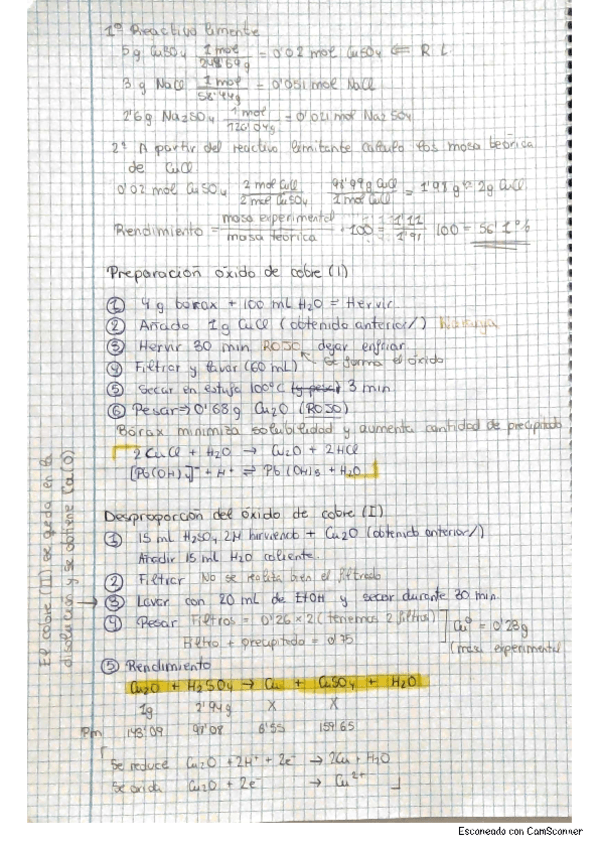 1º Reactivo limitante
5g CuSO4 1 mol / 249'69g = 0'02 mol CuSO4 ⇐ R L
3 g NaCl 1 mol / 58'44g = 0'051 mol NaCl
2'6g Na2SO4 1 mol / 126'04g = 0'021 mol Na2SO4
2º A partir del reactivo limitante calculo los masa teórica
de CuCl
0'02 mol CuSO4 2 mol CuCl / 2 mol CuSO4 98'99g CuCl / 1 mol CuCl = 1'98 g ≈ 2g CuCl
Rendimiento = masa experimental / masa teórica · 100 = 1'11 / 1'91 100 = 56'1%
Preparación óxido de cobre (I)
① 4 g borax + 100 mL H2O = Hervir
② Añado 1g CuCl (obtenido anterior/) Naranja
③ Hervir 30 min ROJO dejar enfriar
se forma el óxido
④ Filtrar y lavar (60 mL)
⑤ Secar en estufa 100ºC 3 min
⑥ Pesar ⇒ 0'68g Cu2O (ROJO)
Bórax minimiza solubilidad y aumenta cantidad de precipitado
2CuCl + H2O → Cu2O + 2HCl
[Pb(OH)4]⁻ + H⁺ ⇌ Pb(OH)3 + H2O
Desproporción del óxido de cobre (I)
① 15 mL H2SO4 2N hirviendo + Cu2O (obtenido anterior/)
Añadir 15 mL H2O caliente.
② Filtrar No se realiza bien el filtrado
→ ③ Lavar con 20 mL de EtOH y secar durante 30 min.
④ Pesar Filtros = 0'26 × 2 (tenemos 2 filtros)
Filtro + precipitado = 0'75
Cu⁰ = 0'23g
(masa experimental
⑤ Rendimiento
Cu2O + H2SO4 → Cu + CuSO4 + H2O
1g 2'94g X X
Pm 143'09 98'08 6'55 159'65
Se reduce Cu2O + 2H⁺ + 2e⁻ → 2Cu + H2O
Se oxida Cu2O + 2e⁻ → Cu²⁺
El cobre (II) se queda en la
disolución y se obtiene
Escaneado con CamScanner